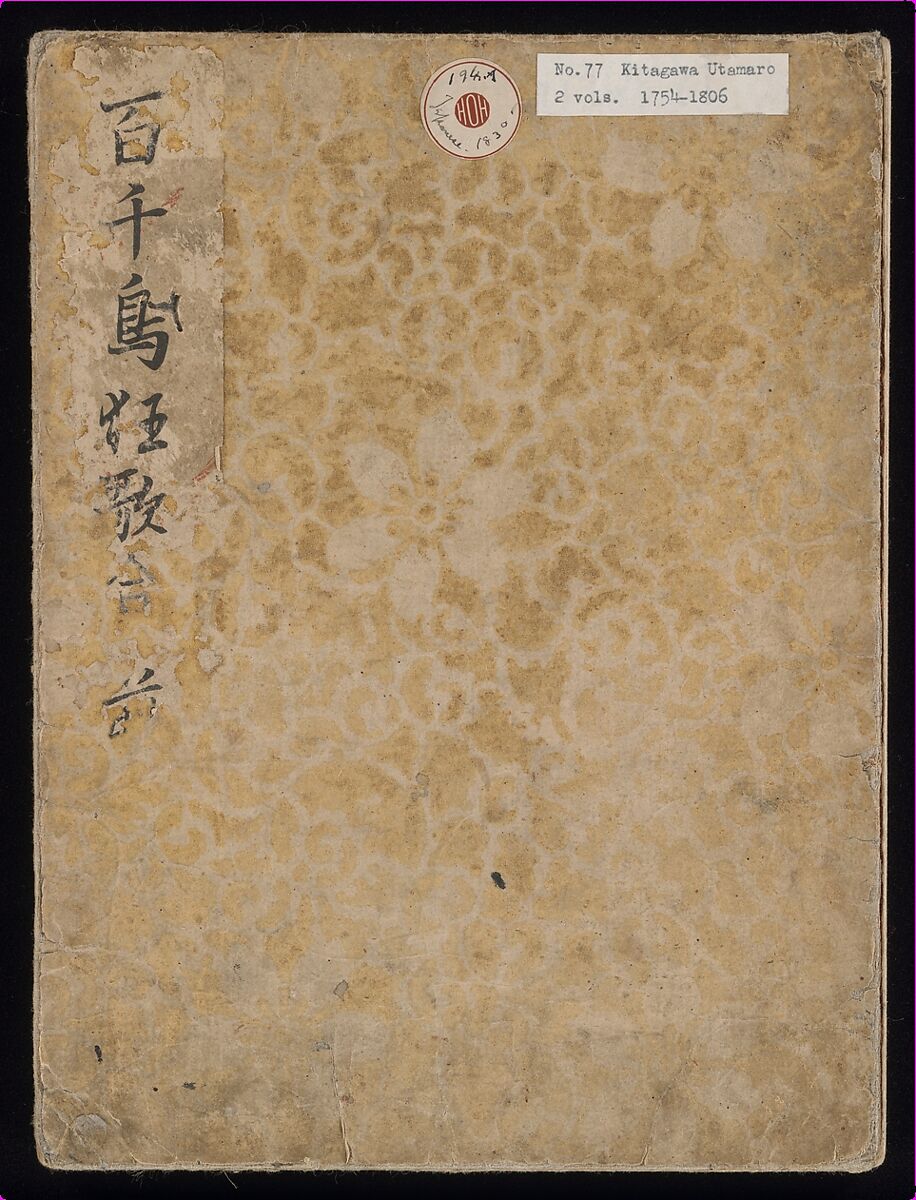 百千鳥狂歌合 前
No.77 Kitagawa Utamaro
2 vols. 1754-1806
HOH
Japanese. 1830